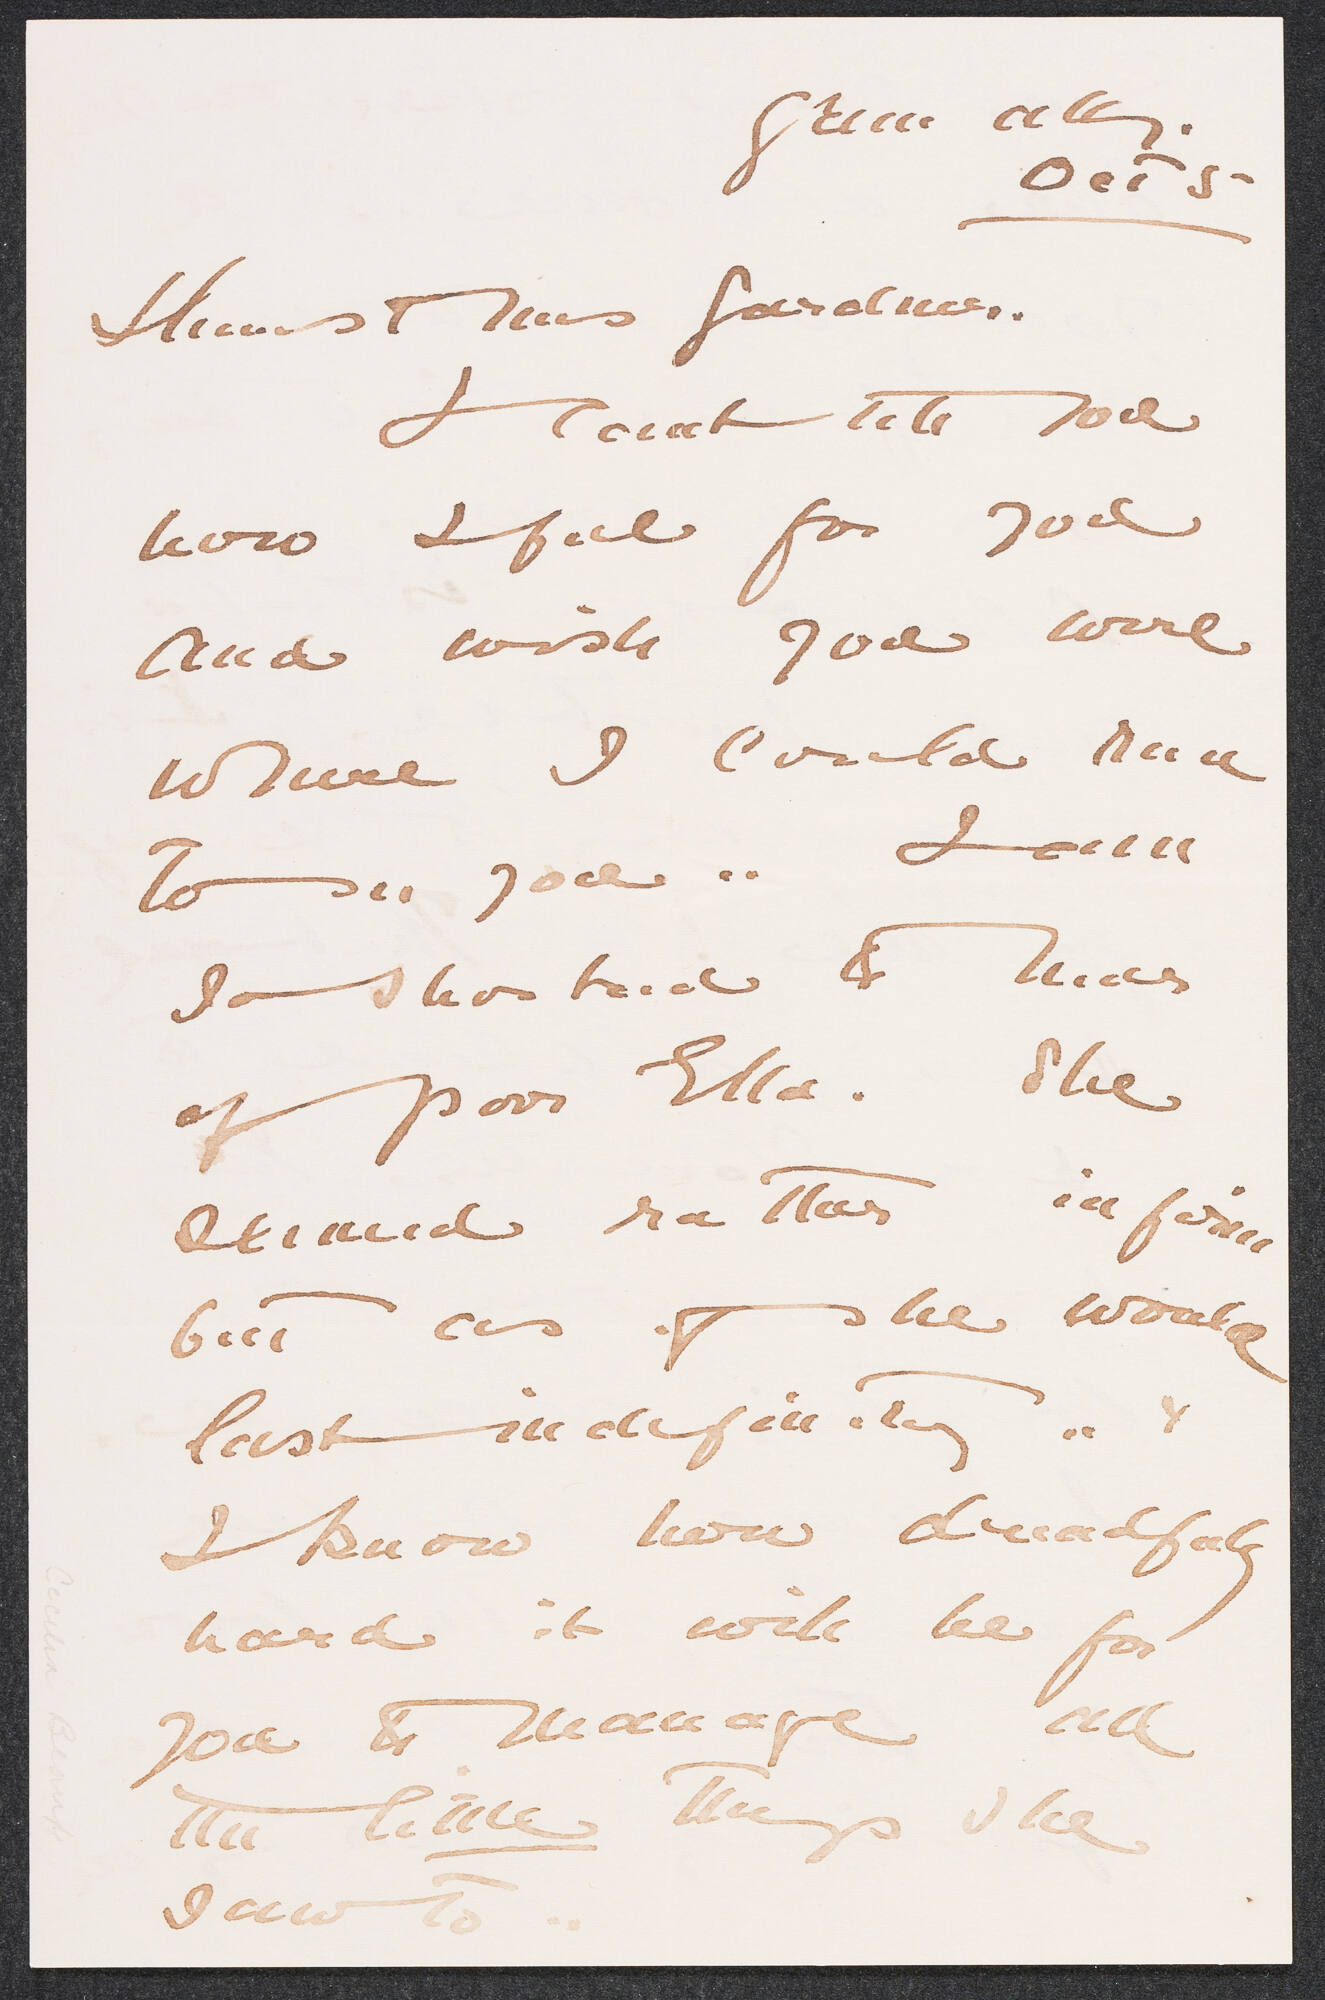 Green alley.
Oct 5
Dearest Mrs Gardner..
I cant tell you
how I feel for you
and wish you were
where I could run
to see you .. I am
so shocked to hear
of poor Ella. She
seemed rather infirm
but as if she would
last indefinitely .. &
I know how dreadfully
hard it will be for
you to manage all
the little things she
saw to ..
Cecilia Beaux